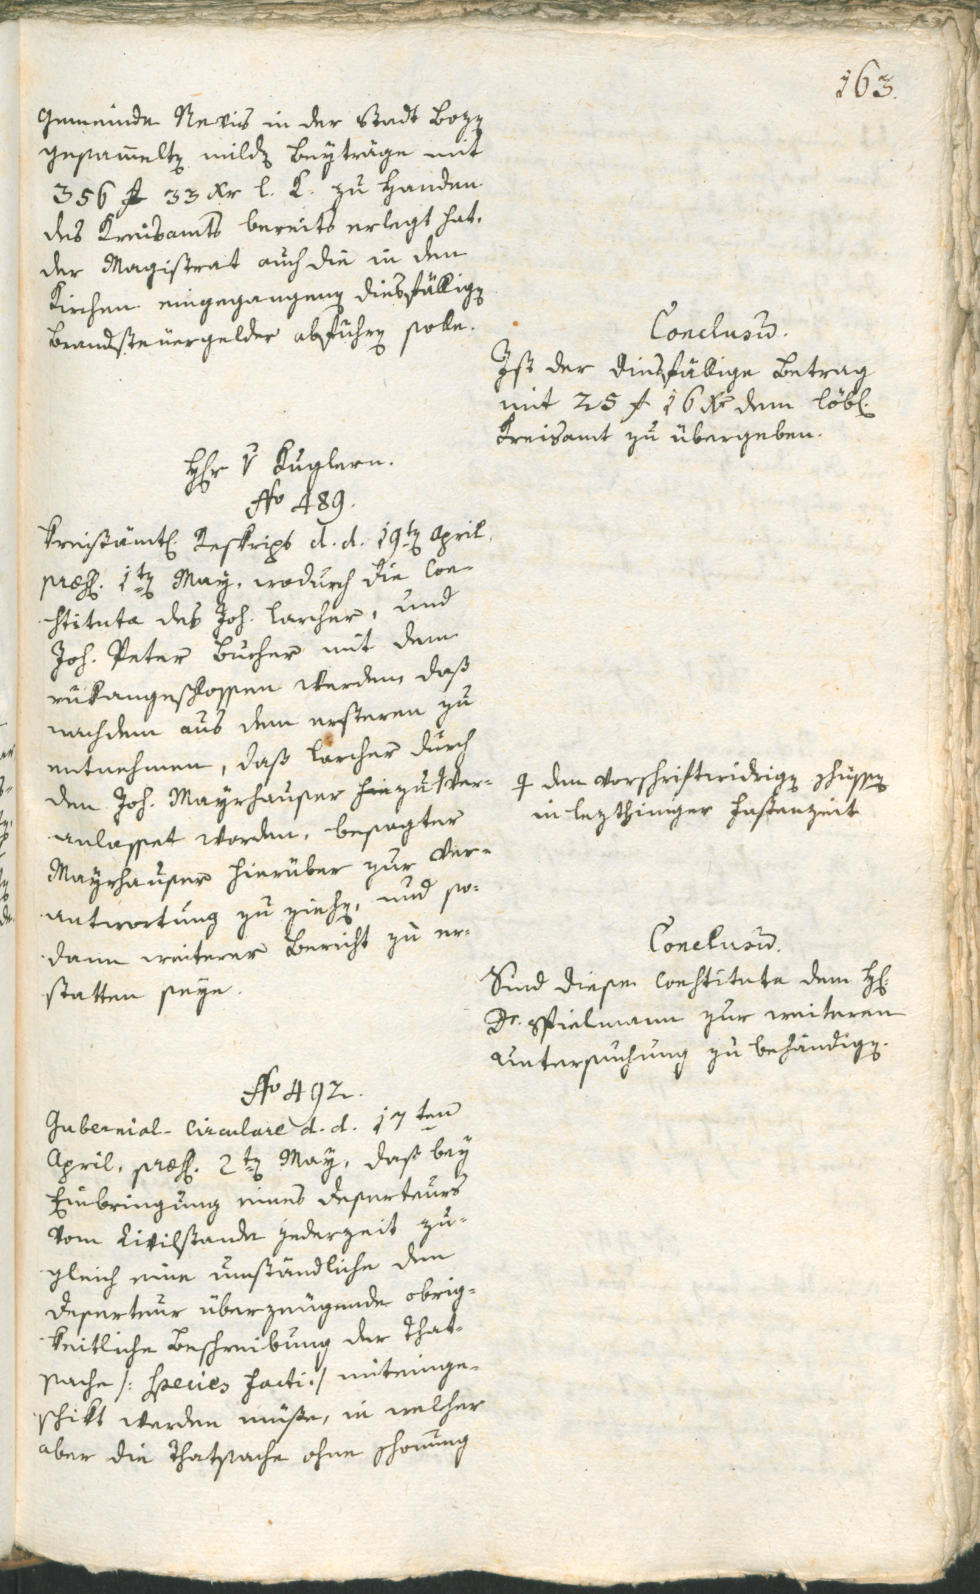 163.
Gemeinde Nevis in der Stadt Bozen
gesam̅elten milden Beyträge mit
356 f 33 Xr l. K. zu Handen
des Kreisamts bereits erlegt hat.
der Magistrat auch die in den
Kirchen eingegangenen diesfälligen
Brandsteuergelder abführen solle.
Conclusū.
Ist der diesfällige Betrag
mit 25 f 16 Xr dem löbl.
Kreisamt zu übergeben.
H̅r v Kuglern.
No 489.
Kreisämtl. Reskript d. d. 19ten April,
præs. 1ten May, wodurch die Con-
stituta des Joh. Larcher, und
Joh. Peter Bucher mit dem
rükangeschlossen werden, daß
nachdem aus dem ersteren zu
entnehmen, daß Larcher durch
den Joh. Mayrhauser hiezu ver-
anlasset worden, besagter
Mayrhauser hierüber zur Ver-
antwortung zu ziehen, und so-
dann weiterer Bericht zu er-
statten seye.
dem vorschriftwidrigen schüssen
in lezthiniger Fastenzeit
Conclusū.
Sind diese Constituta dem H.
Dr. Spielmann zur weiteren
Untersuchung zu behändigen.
No 492.
Gubernial-Circulare d. d. 17ten
April, præs. 2ten May, daß bey
Einbringung eines Deserteurs
vom Civilstande jederzeit zu-
gleich eine umständliche den
Deserteur überzeugende obrig-
keitliche Beschreibung der That-
sache /: species facti :/ miteinge-
schikt werden müße, in welcher
aber die Thatsache ohne Schonung